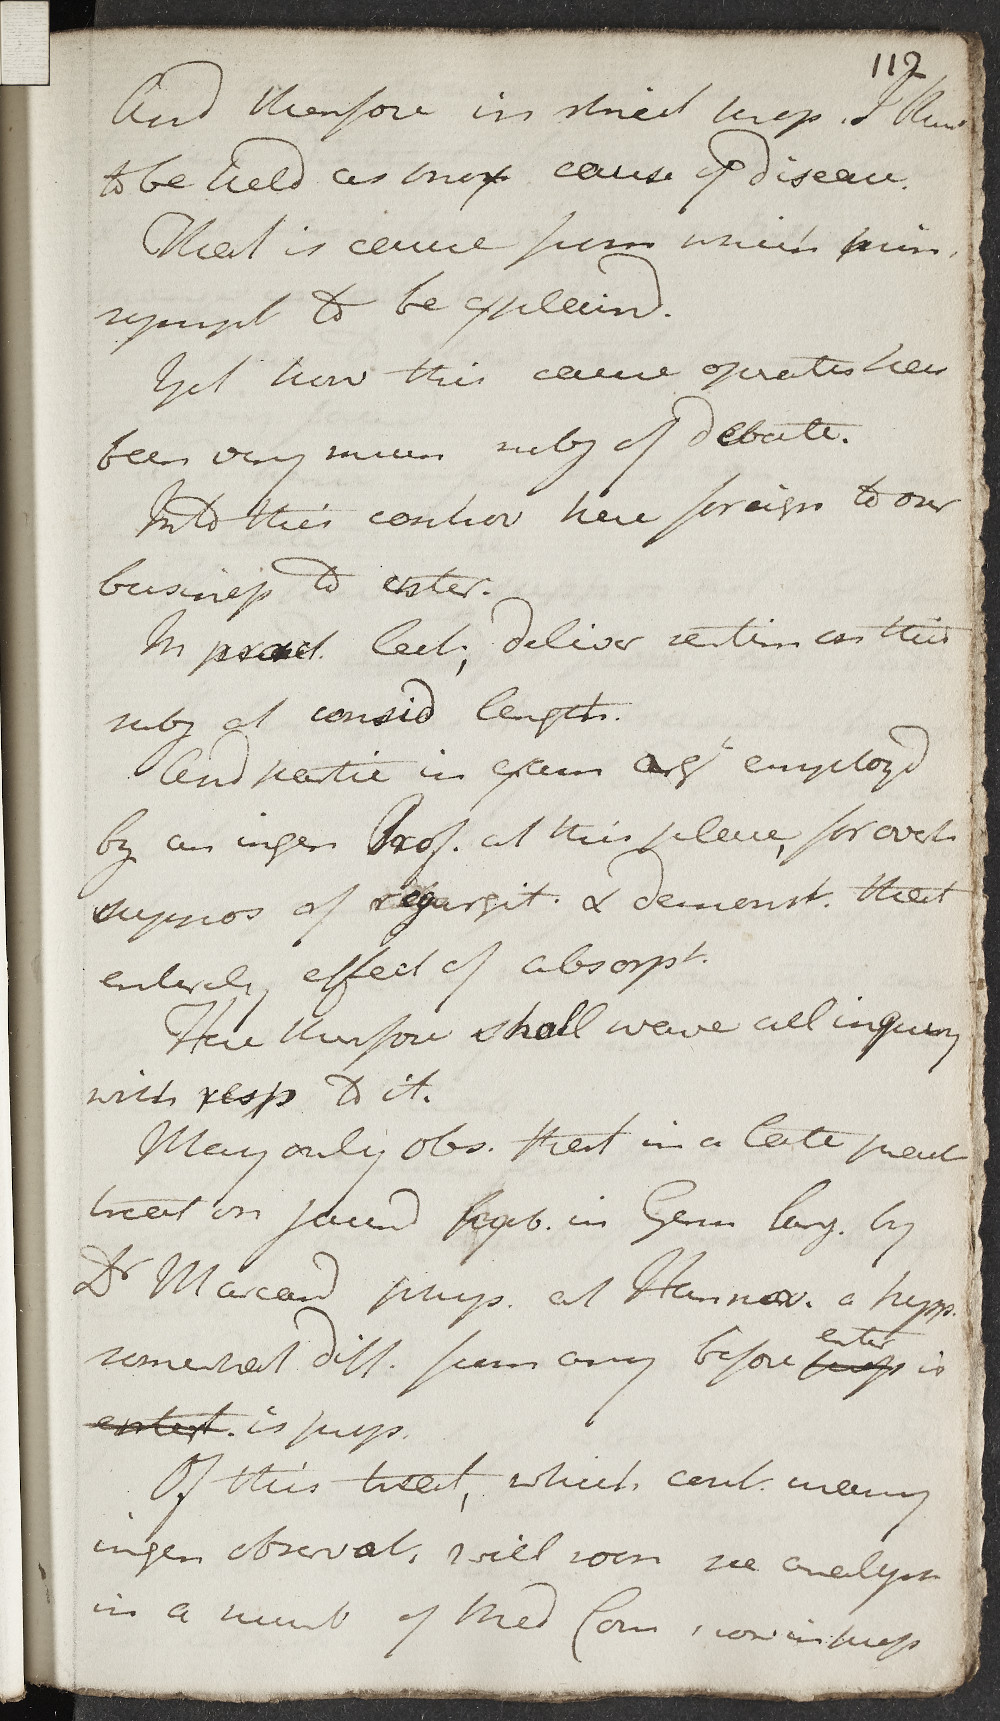 112
And therefore in strict prop. I think
to be held as prox cause of disease.
That is cause from which prin.
sympt to be explaind.
Yet how this cause operates has
been very much subj of debate.
Into this controv here foreign to our
business to enter.
In pract. lect, deliver sentim on this
subj at consid length.
And partic in exam argt employd
by an ingen Prof. at this place, for overt
suppos of regurgit. & demonst. that
entirely effect of absorpt.
Here therfore shall wave all inquiry
with resp to it.
May only obs. that in a late pract
treat on jaund publ. in Germ lang. by
Dr Marcard phys. at Hannov. a hypp.
somewhat diff. from any before enter
is
is props.
Of this treat, which cont. many
ingen observat, will soon see analysis
in a numb of Med Com, now in press